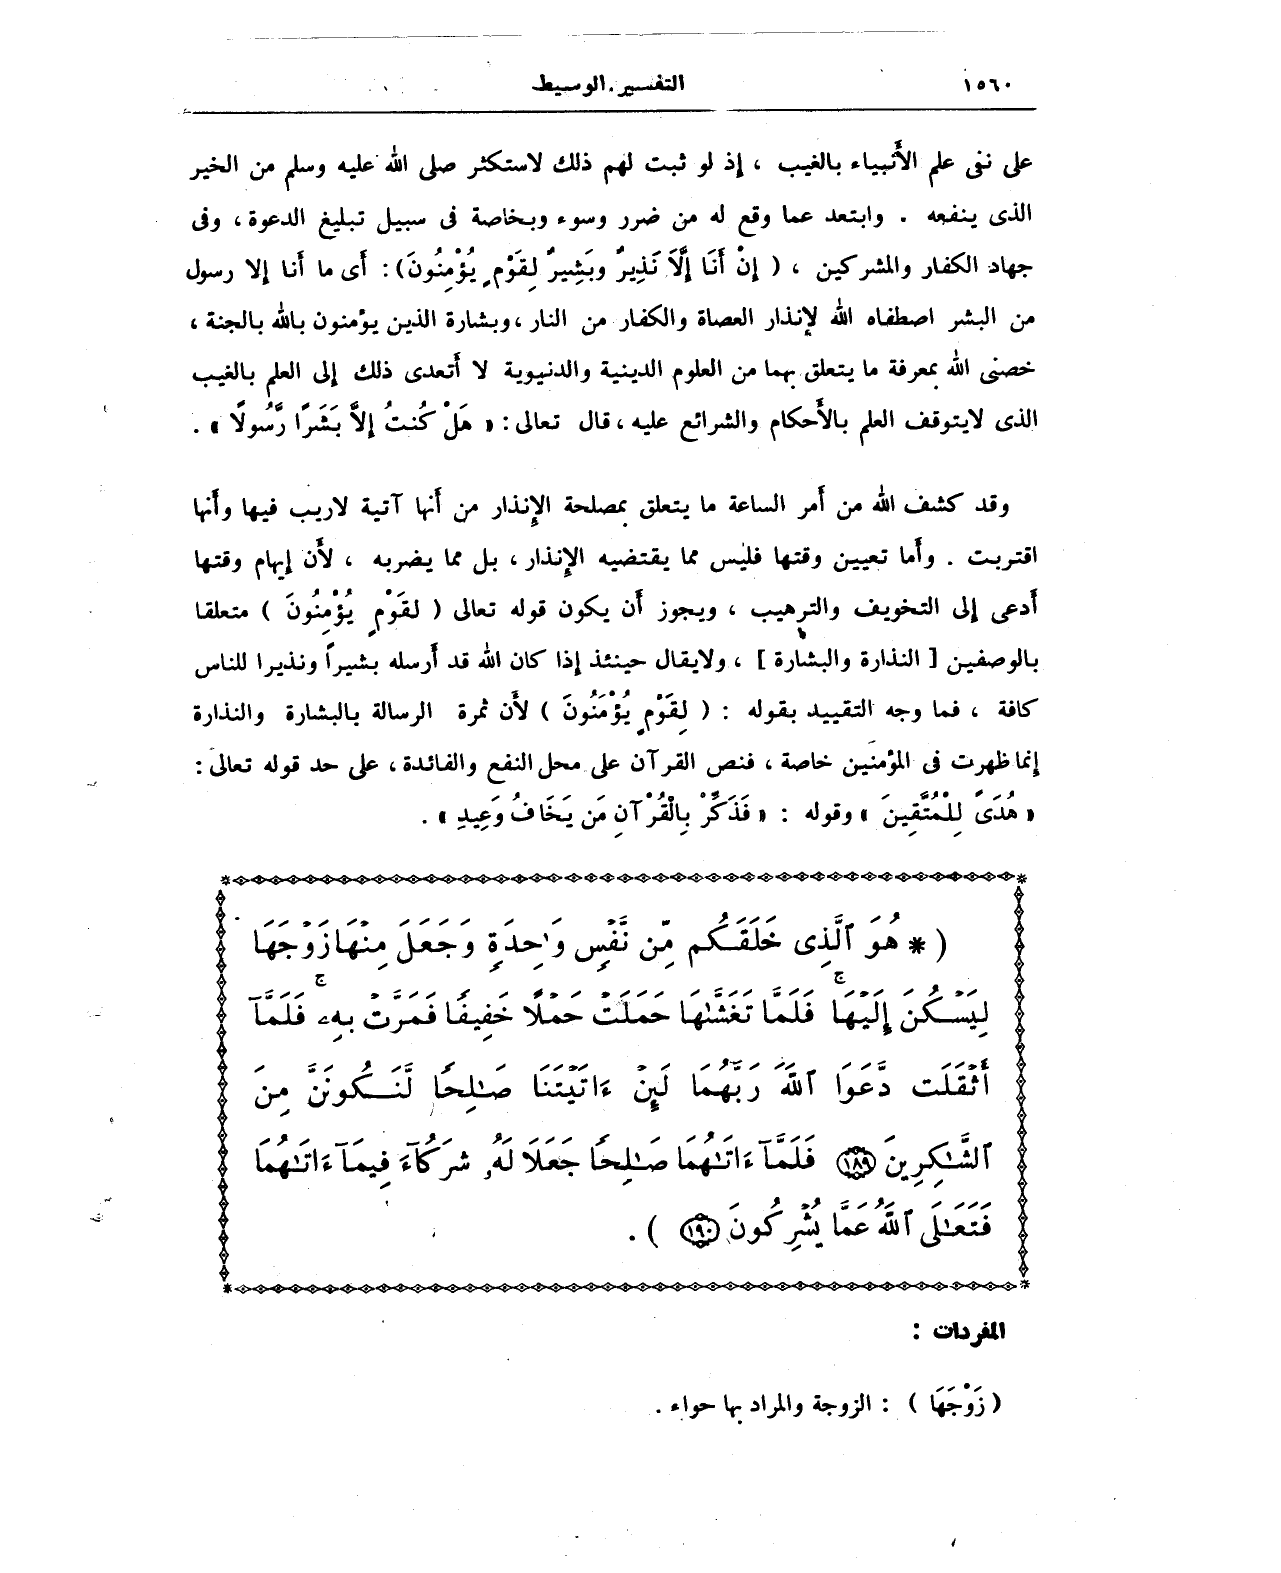 ١٥٦٠
التفسير الوسيط
على نفى علم الأنبياء بالغيب ، إذ لو ثبت لهم ذلك لاستكثر صلى الله عليه وسلم من الخير
الذى ينفعه . وابتعد عما وقع له من ضرر وسوء وبخاصة فى سبيل تبليغ الدعوة ، وفى
جهاد الكفار والمشركين ، ( إِنْ أَنَا إِلَّا نَذِيرٌ وبَشِيرٌ لِقَوْمٍ يُؤْمِنُونَ) : أى ما أنا إلا رسول
من البشر اصطفاه الله لإنذار العصاة والكفار من النار ، وبشارة الذين يؤمنون بالله بالجنة ،
خصنى الله بمعرفة ما يتعلق بهما من العلوم الدينية والدنيوية لا أتعدى ذلك إلى العلم بالغيب
الذى لايتوقف العلم بالأحكام والشرائع عليه ، قال تعالى : « هَلْ كُنتُ إِلاَّ بَشَرًا رَّسُولًا » .
وقد كشف الله من أمر الساعة ما يتعلق بمصلحة الإنذار من أنها آتية لاريب فيها وأنها
اقتربت . وأما تعيين وقتها فليس مما يقتضيه الإنذار ، بل مما يضربه ، لأن إبهام وقتها
أدعى إلى التخويف والترهيب ، ويجوز أن يكون قوله تعالى ( لِقَوْمٍ يُؤْمِنُونَ ) متعلقا
بالوصفين [ النذارة والبشارة ] ، ولايقال حينئذ إذا كان الله قد أرسله بشيراً ونذيرا للناس
كافة ، فما وجه التقييد بقوله : ( لِقَوْمٍ يُؤْمِنُونَ ) لأن ثمرة الرسالة بالبشارة والنذارة
إنما ظهرت فى المؤمنين خاصة ، فنص القرآن على محل النفع والفائدة ، على حد قوله تعالى :
« هُدَىً لِلْمُتَّقِينَ » وقوله : « فَذَكِّرْ بِالْقُرْآنِ مَن يَخَافُ وَعِيدِ » .
( * هُوَ ٱلَّذِى خَلَقَكُم مِّن نَّفْسٍ وَٰحِدَةٍ وَجَعَلَ مِنْهَا زَوْجَهَا
لِيَسْكُنَ إِلَيْهَا ۖ فَلَمَّا تَغَشَّىٰهَا حَمَلَتْ حَمْلًا خَفِيفًا فَمَرَّتْ بِهِۦ ۖ فَلَمَّآ
أَثْقَلَت دَّعَوَا ٱللَّهَ رَبَّهُمَا لَئِنْ ءَاتَيْتَنَا صَٰلِحًا لَّنَكُونَنَّ مِنَ
ٱلشَّٰكِرِينَ ١٨٩ فَلَمَّآ ءَاتَىٰهُمَا صَٰلِحًا جَعَلَا لَهُۥ شُرَكَآءَ فِيمَآ ءَاتَىٰهُمَا
فَتَعَٰلَى ٱللَّهُ عَمَّا يُشْرِكُونَ ١٩٠ ) .
المفردات :
( زَوْجَهَا ) : الزوجة والمراد بها حواء .